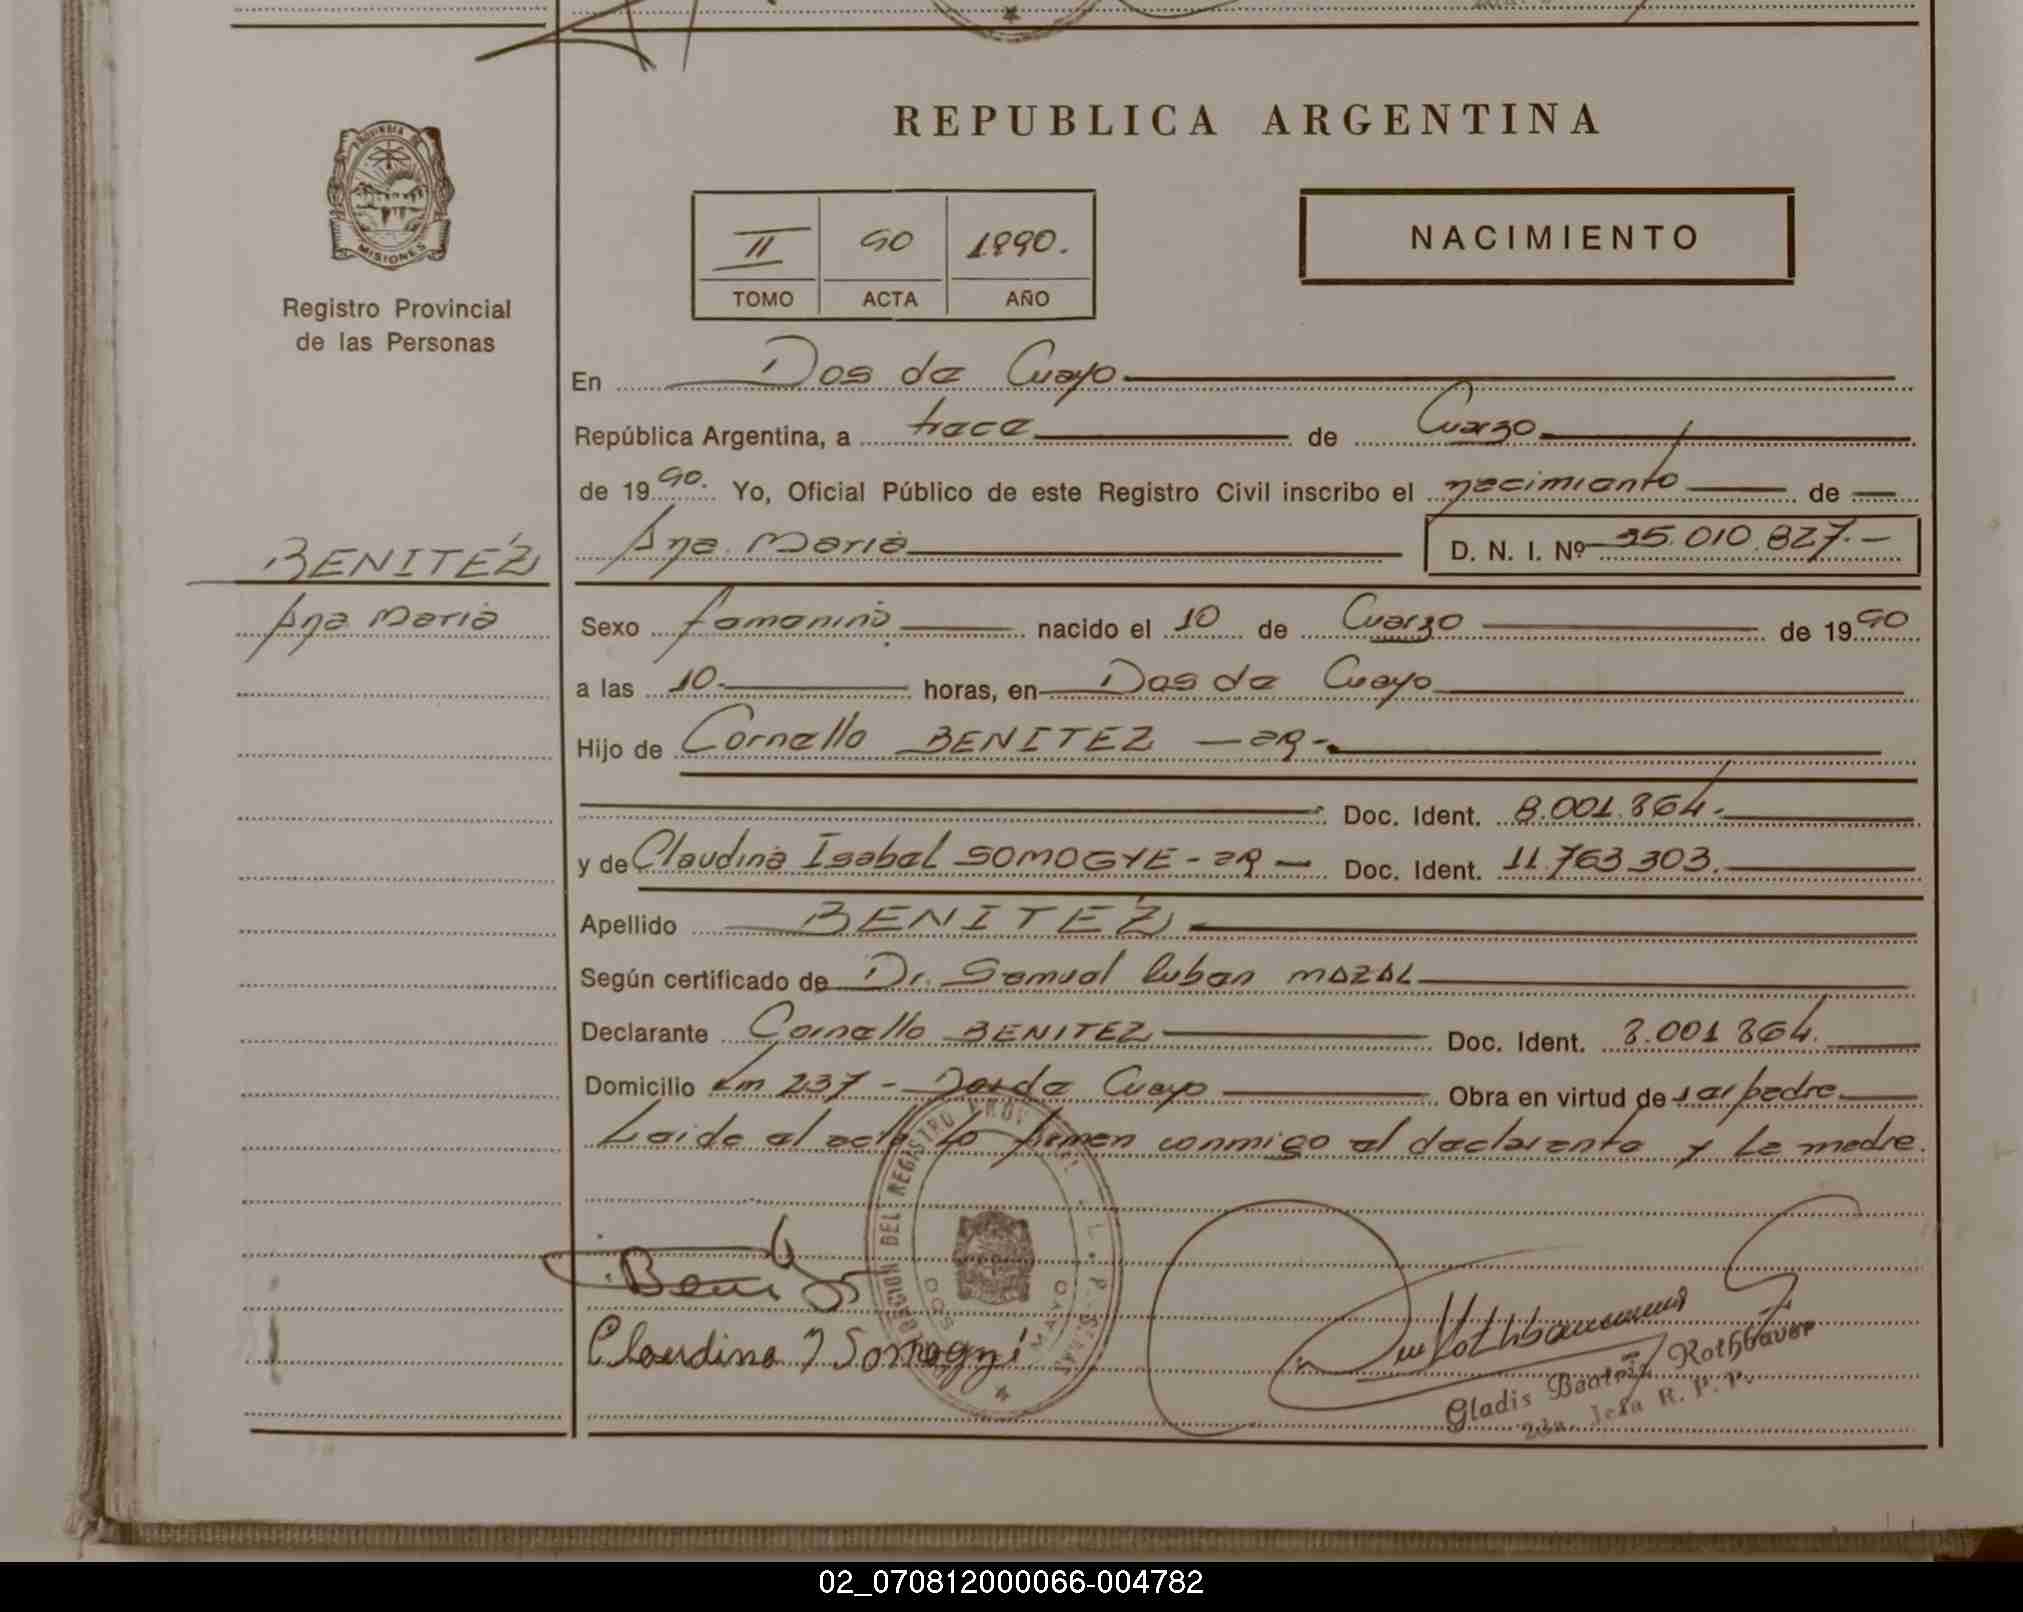 REPUBLICA ARGENTINA
PROVINCIA DE
MISIONES
Registro Provincial
de las Personas
II 90 1990.
TOMO ACTA AÑO
NACIMIENTO
En Dos de Mayo
República Argentina, a trece de Marzo
de 1990. Yo, Oficial Público de este Registro Civil inscribo el nacimiento de
BENITEZ
Ana Maria
Ana Maria D. N. I. Nº 35.010.827.-
Sexo femenino nacido el 10 de Marzo de 1990
a las 10 horas, en Dos de Mayo
Hijo de Cornelio BENITEZ - ar -
Doc. Ident. 8.001.864.
y de Claudina Isabel SOMOGYE - ar - Doc. Ident. 11.763.303.
Apellido BENITEZ
Según certificado de Dr. Samuel Ruben MAZAL
Declarante Cornelio BENITEZ Doc. Ident. 8.001.864.
Domicilio km 237 - Dos de Mayo Obra en virtud de ser padre
Leida el acta la firman conmigo el declarante y la madre.
DEL REGISTRO
DOS MAYO
Claudina I Somogyi
Gladis Beatriz Rothbauer
Jefa R. P. P.
02_070812000066-004782